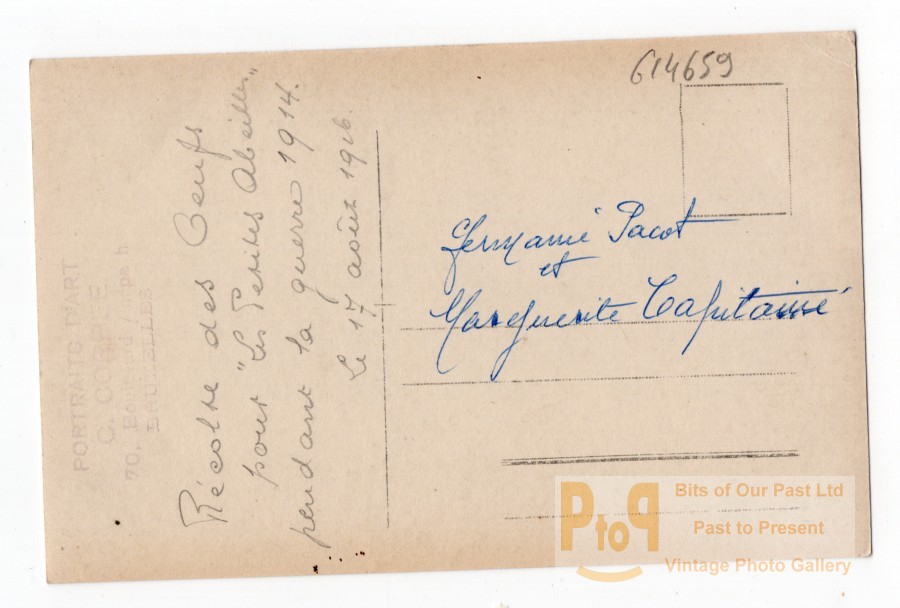 614659
Récolte des Oeufs
pour "Les Petites Abeilles"
pendant la guerre 1914.
le 17 août 1916.
Germaine Pacot
et
Marguerite Capitaine
PORTRAITS D'ART
70, Boulevard
BRUXELLES
PtoP
Bits of Our Past Ltd
Past to Present
Vintage Photo Gallery